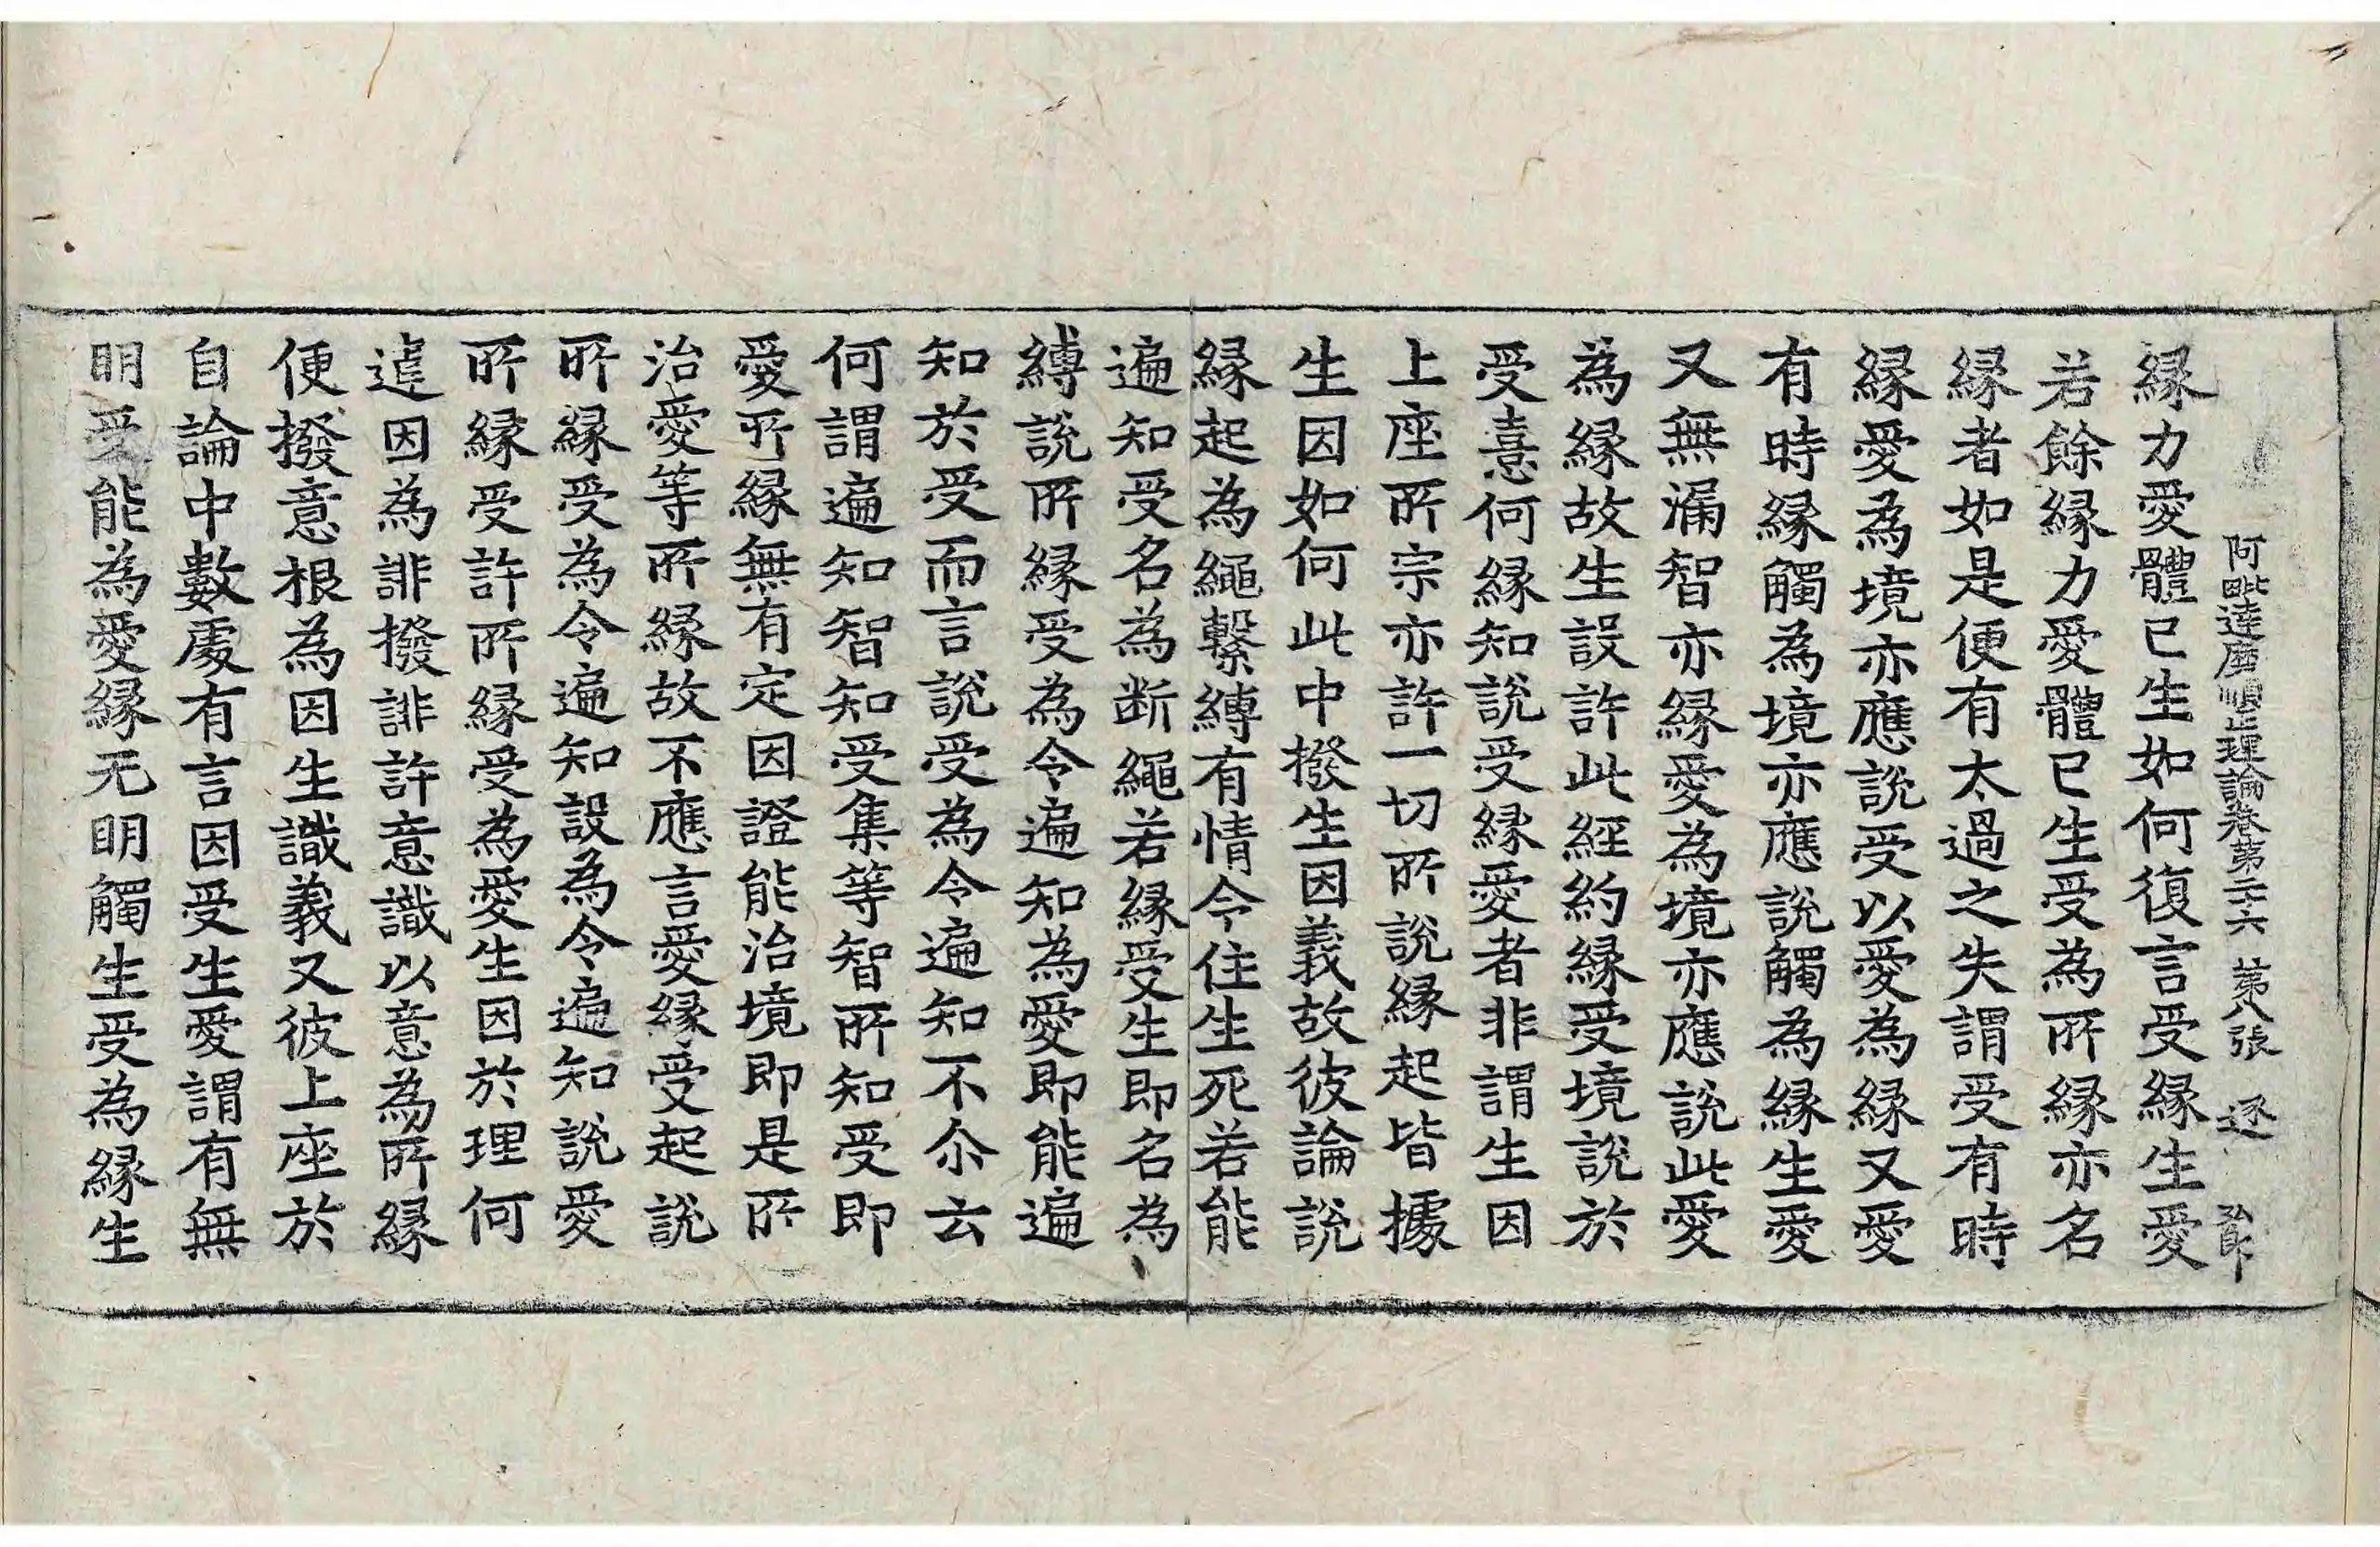 阿毗達磨順正理論卷第二十六 第八張 逐
縁力愛體已生如何復言受縁生愛
若餘縁力愛體已生受為所縁亦名
縁者如是便有太過之失謂受有時
縁愛為境亦應說受以愛為縁又愛
有時縁觸為境亦應說觸為縁生愛
又無漏智亦縁愛為境亦應說此愛
為縁故生設許此經約縁受境說於
受憙何縁知說受縁愛者非謂生因
上座所宗亦許一切所說縁起皆據
生因如何此中撥生因義故彼論說
縁起為繩繫縛有情令住生死若能
遍知受名為断繩若縁受生即名為
縛說所縁受為令遍知為愛即能遍
知於受而言說受為令遍知不尒云
何謂遍知智知受集等智所知受即
愛所縁無有定因證能治境即是所
治愛等所縁故不應言愛縁受起說
所縁受為令遍知設為令遍知說愛
所縁受許所縁受為愛生因於理何
違因為誹撥誹許意識以意為所縁
便撥意根為因生識義又彼上座於
自論中數處有言因受生愛謂有無
明受能為愛縁无明觸生受為縁生